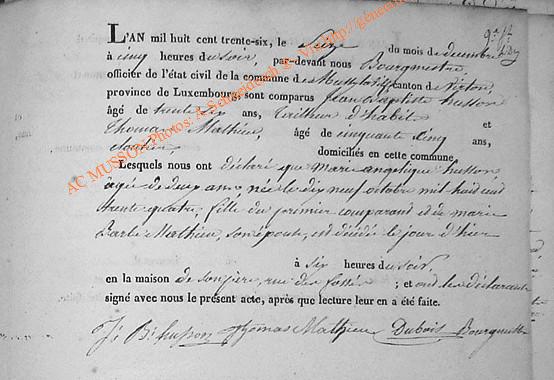 L'AN mil huit cent trente-six, le Seize du mois de decembre
à cinq heures du soir, par-devant nous Bourgmestre
officier de l'état civil de la commune de canton de Virton,
province de Luxembourg, sont comparus Jean Baptiste husson
âgé de trente six ans, tailleur d'habits et
Thomas Mathieu, âgé de cinquante cinq ans,
domiciliés en cette commune,
Lesquels nous ont déclaré que marie angelique husson
agée de deux ans, née le dix neuf octobre mil huit cent
trente quatre, fille du premier comparant et de marie
Barbe Mathieu, son épouse, est décédé le jour d'hier
à six heures du soir,
en la maison de son père, rue des fossés ; et ont les déclarants
signé avec nous le présent acte, après que lecture leur en a été faite.
J. Bte husson Thomas Mathieu Dubois Bourgmestre
AC MUSSON Photos: A. Schneidesch © http://genea